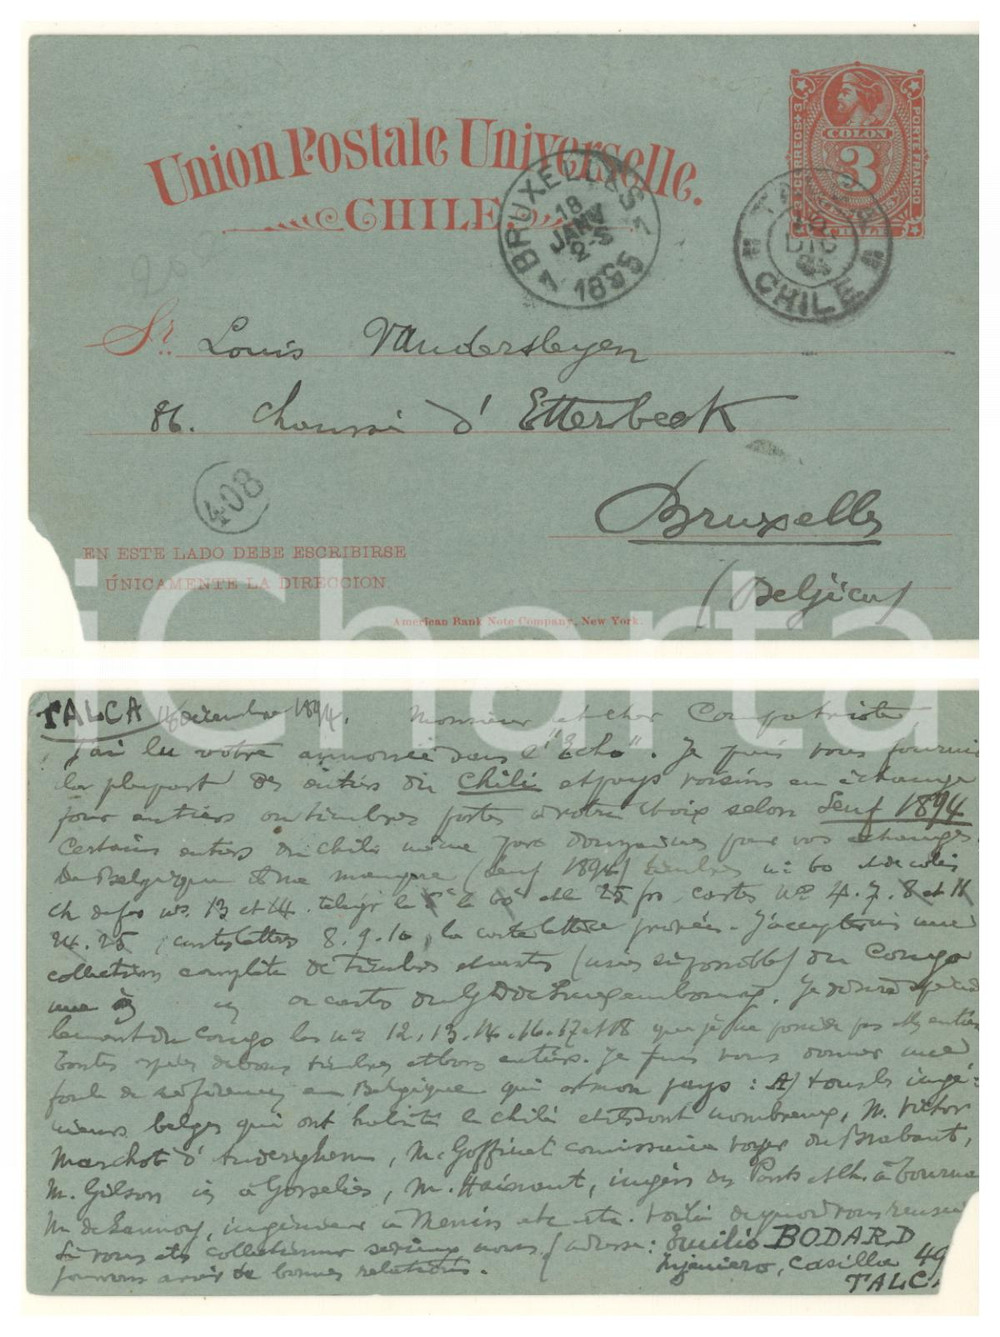 Union Postale Universelle.
CHILE.
CORREOS 3
PORTE FRANCO
COLON
3
BRUXELLES
18
JANV
2-S
1895
TALCA
DIC
94
CHILE
Sr. Louis Vandersleyen
86. Chaussée d'Etterbeek
Bruxelles
(Belgica)
408
EN ESTE LADO DEBE ESCRIBIRSE
ÚNICAMENTE LA DIRECCION.
American Bank Note Company, New York.
iCharta
TALCA 14 Décembre 1894. Monsieur et cher Compatriote
J'ai lu votre annonce dans l'"Echo". Je puis vous fournir
la plupart des entiers du Chili et pays voisins en échange
pour entiers ou timbres postes à votre choix selon Senf 1894
Certains entiers du Chili même par douzaines pour vos échanges.
De Belgique il me manque (Senf 1894) timbres n° 60
ch de fer n° 13 et 14. télégr le et le 25 fr, cartes n° 4. 7. 8 et 11
24. 25, cartes lettres 8. 9. 10, la carte lettre privée. J'accepterais une
collection complète de timbres et cartes (usés si possible) du Congo
ou cartes du G D de Luxembourg. Je désire spécia
lement du Congo les n° 12. 13. 14. 16. 17 et 18 que je ne possède pas
timbres et bons entiers. Je puis vous donner une
foule de références en Belgique qui est mon pays: A) tous les ingé-
nieurs belges qui ont habité le Chili et ils sont nombreux, M. Victor
Marchot d'Auderghem, M. Goffinet comissaire voyer du Brabant,
M. Gilson à Gosselies, M. Haissaut, ingén des Ponts et Ch. à Tournai
M. de Lannoy, ingénieur à Menin etc etc. Voilà de quoi vous renseig
Si vous êtes collectionneur sérieux nous (adresse: Emilio BODARD
pourrons avoir de bonnes relations. Injeniero, Casilla 49
TALCA